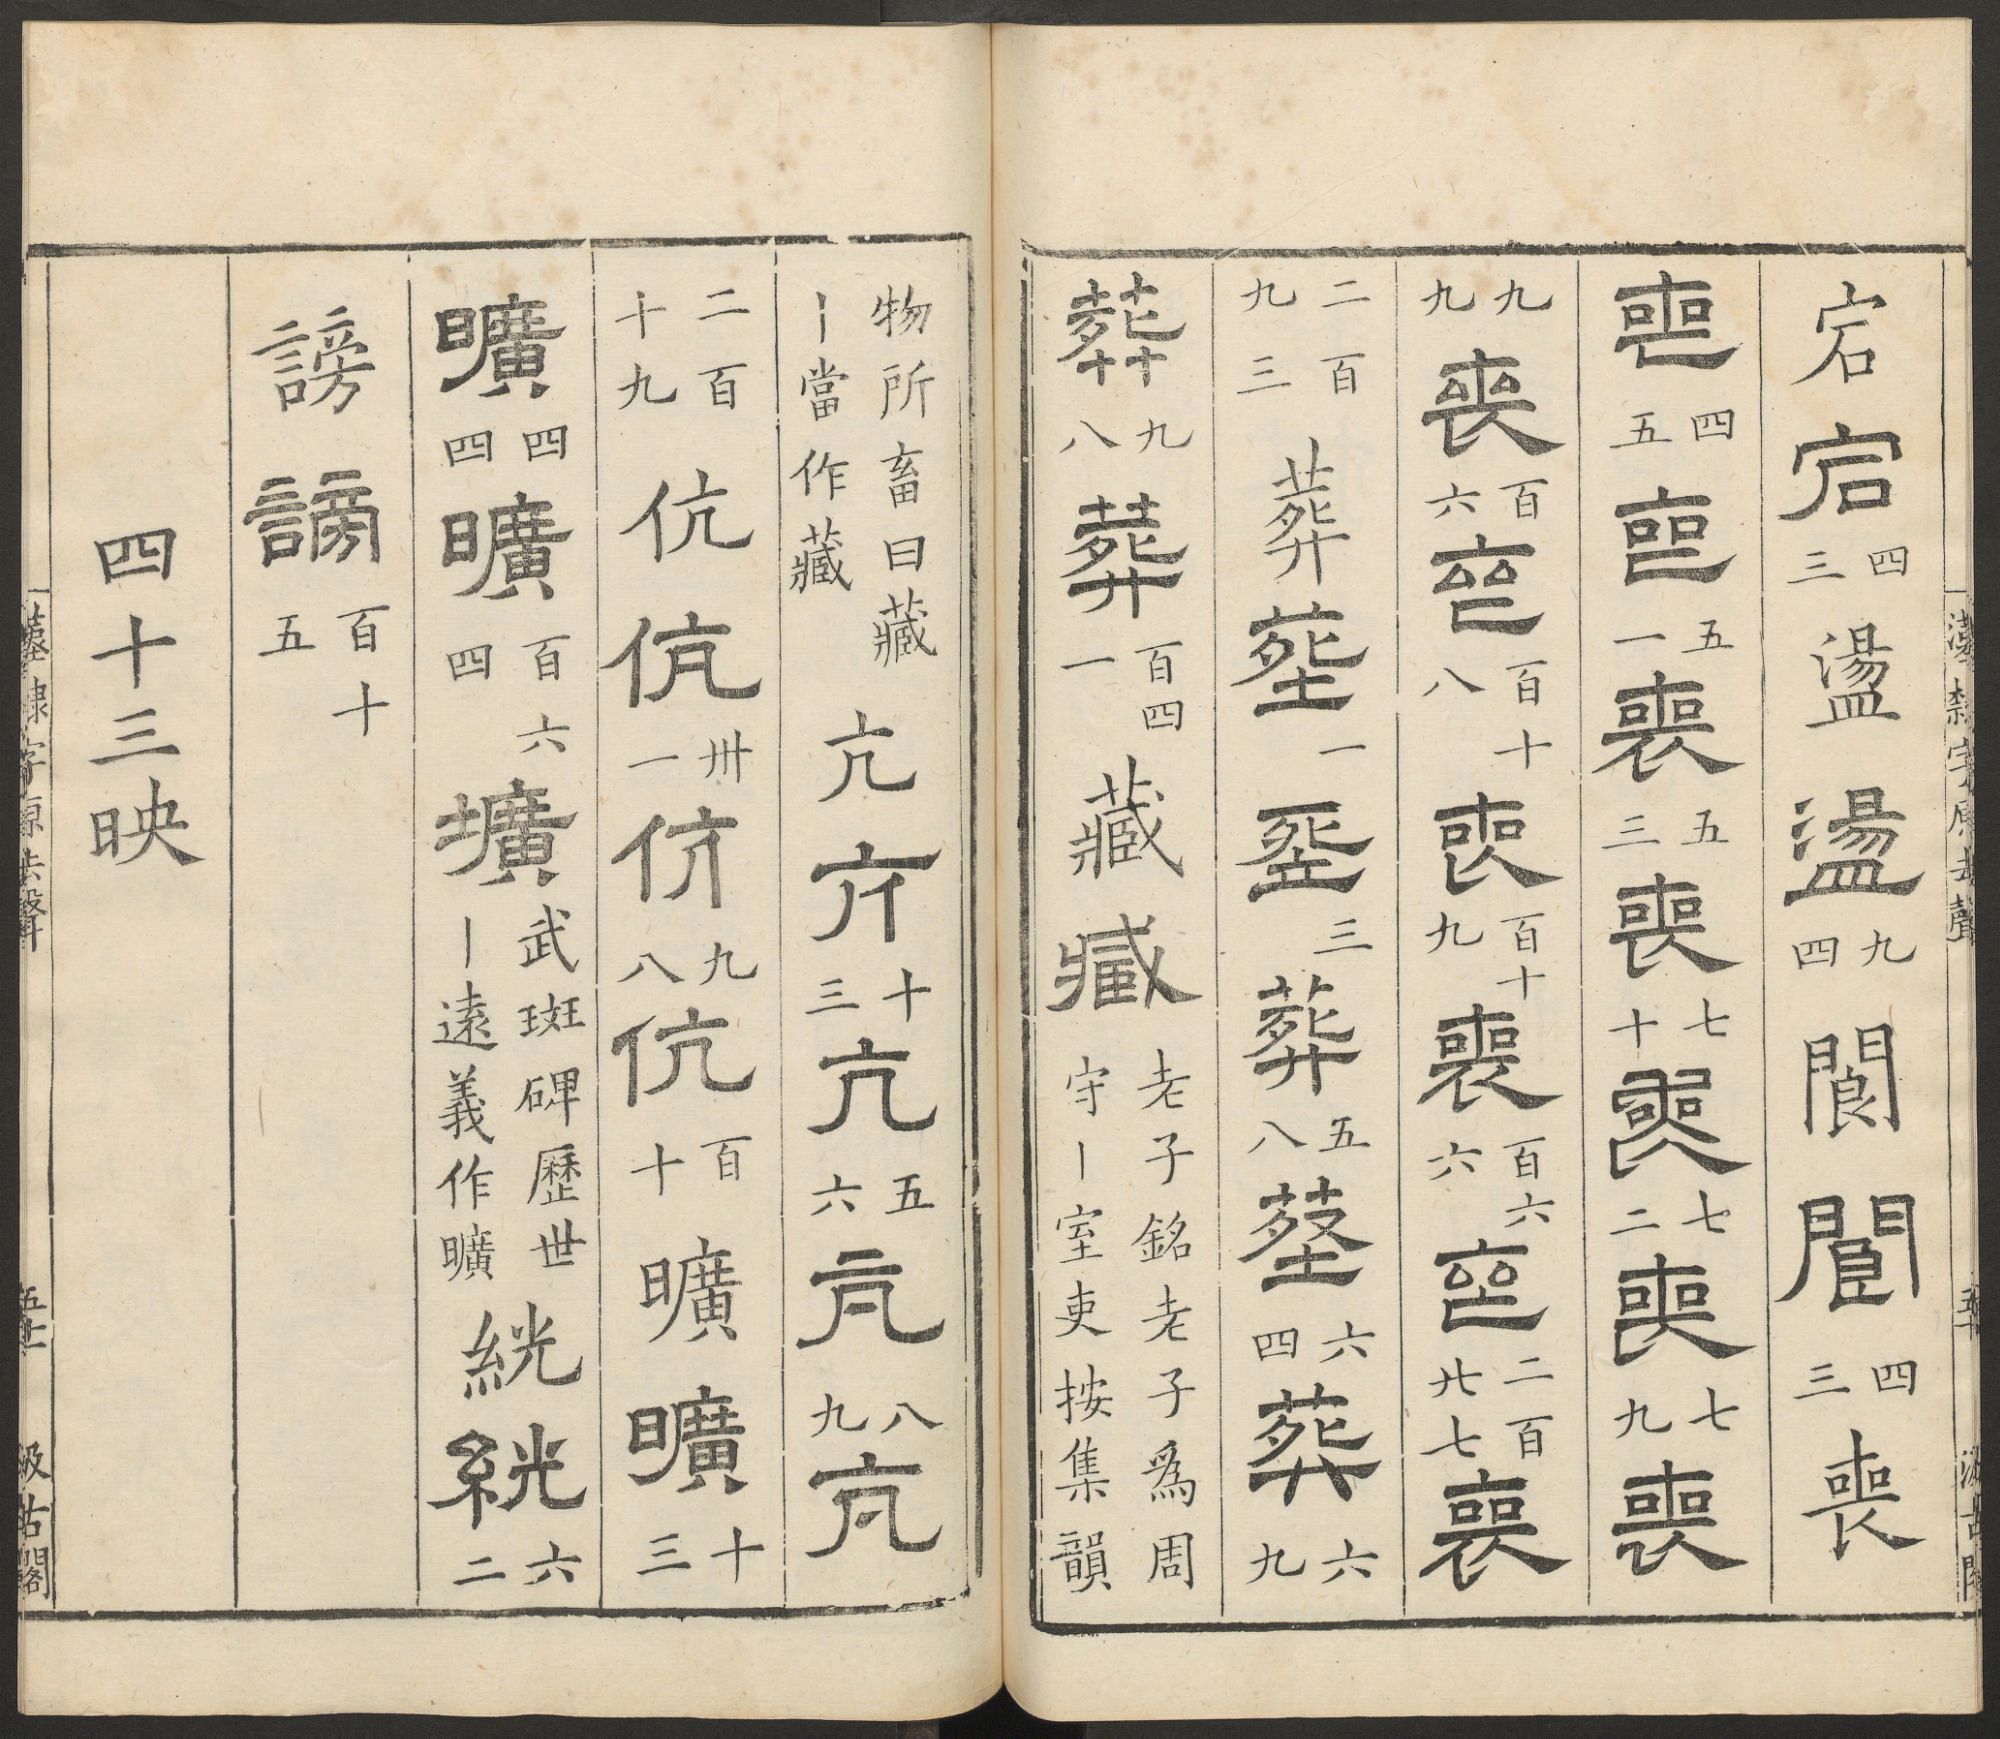 宕宕四三盪盪九四閬閬四三喪
喪四五喪五一喪五三喪七十喪七二喪七九喪
九九喪百六喪百十八喪百十九喪百六六喪二百廿七喪
二百九三葬葬一葬三葬五八葬六四葬六九
葬九八葬百四一藏藏老子銘老子爲周守丨室吏按集韻
物所畜曰藏丨當作藏亢亢十三亢五六亢八九亢
二百十九伉伉卅一伉九八伉百十曠曠十三
曠四四曠百六四壙武斑碑歷世丨遠義作曠絖絖六二
謗謗百十五
四十三映
漢隸字原去聲 汲古閣